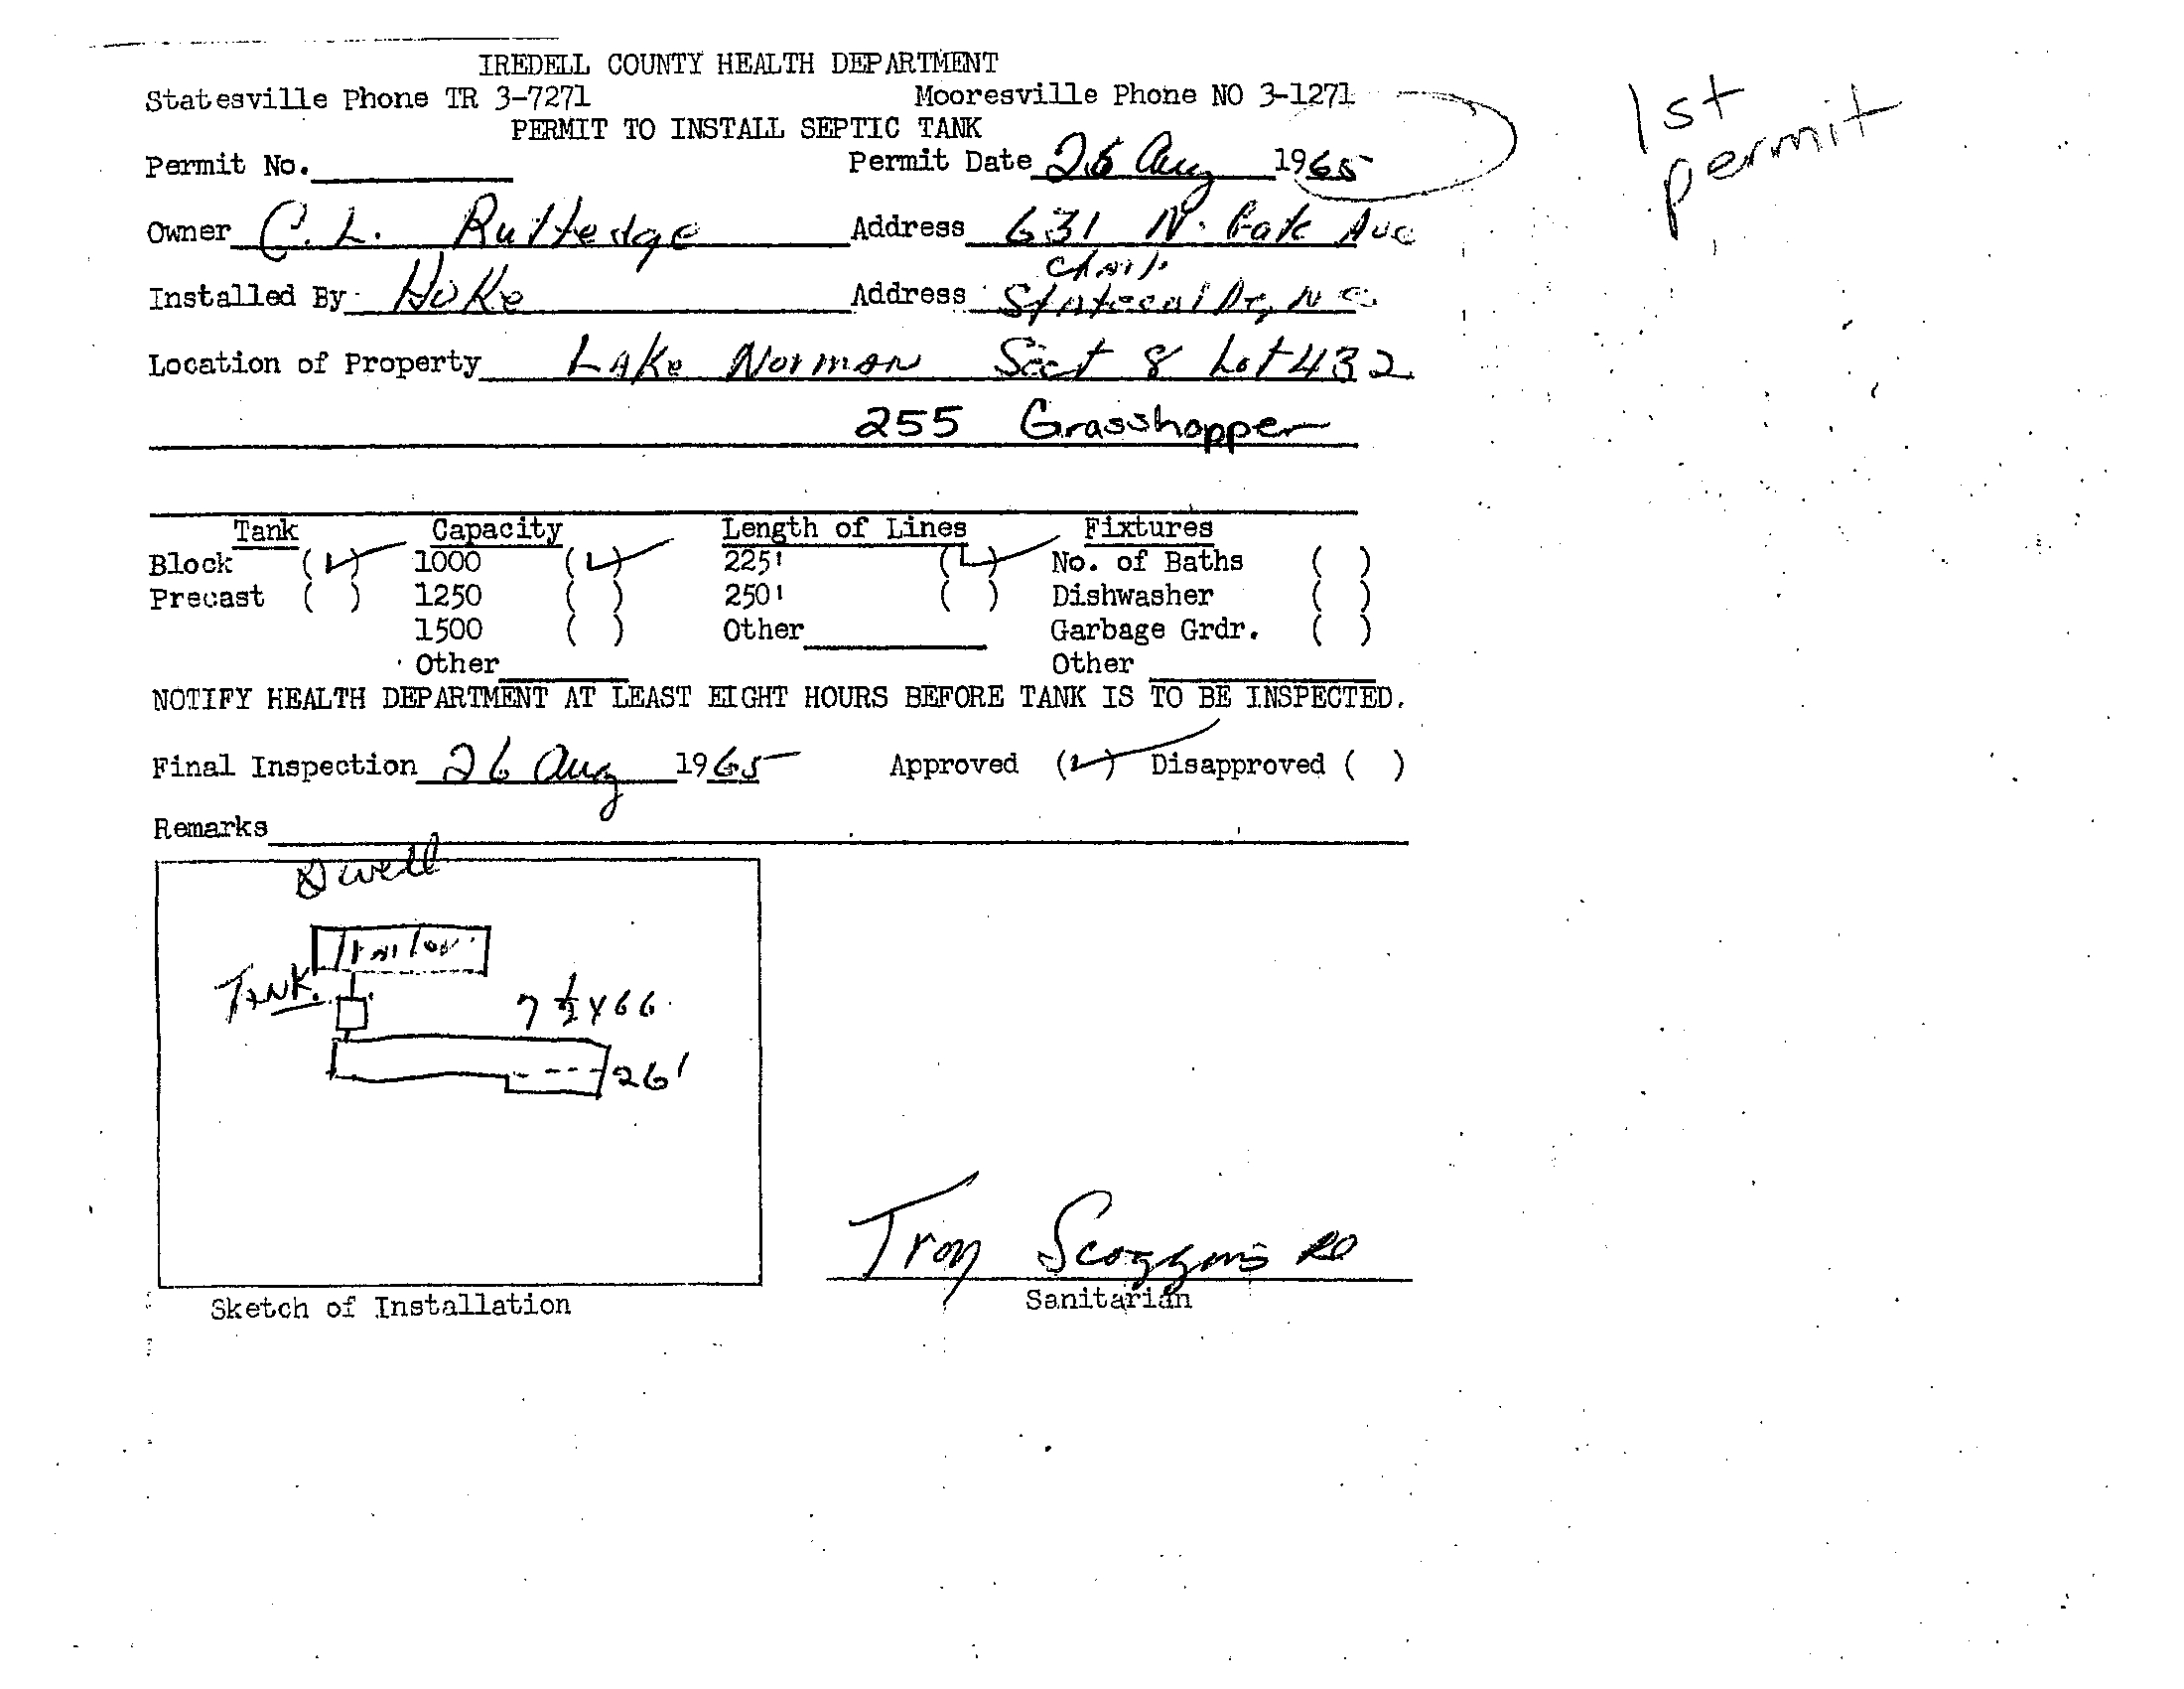 IREDELL COUNTY HEALTH DEPARTMENT
Statesville Phone TR 3-7271 Mooresville Phone NO 3-1271
1st permit
PERMIT TO INSTALL SEPTIC TANK
Permit No. Permit Date 26 Aug 1965
Owner C. L. Rutledge Address 631 N. Ave
Installed By Hoke Address Statesville, N C
Location of Property Lake Norman Sect 8 Lot 432
255 Grasshopper
Tank Capacity Length of Lines Fixtures
Block (✓) 1000 (✓) 225' (✓) No. of Baths ( )
Precast ( ) 1250 ( ) 250' ( ) Dishwasher ( )
1500 ( ) Other Garbage Grdr. ( )
Other Other
NOTIFY HEALTH DEPARTMENT AT LEAST EIGHT HOURS BEFORE TANK IS TO BE INSPECTED.
Final Inspection 26 Aug 1965 Approved (✓) Disapproved ( )
Remarks
well
Trailer
TANK.
7 ½ x 66
26'
Troy Scoggins
Sketch of Installation Sanitarian